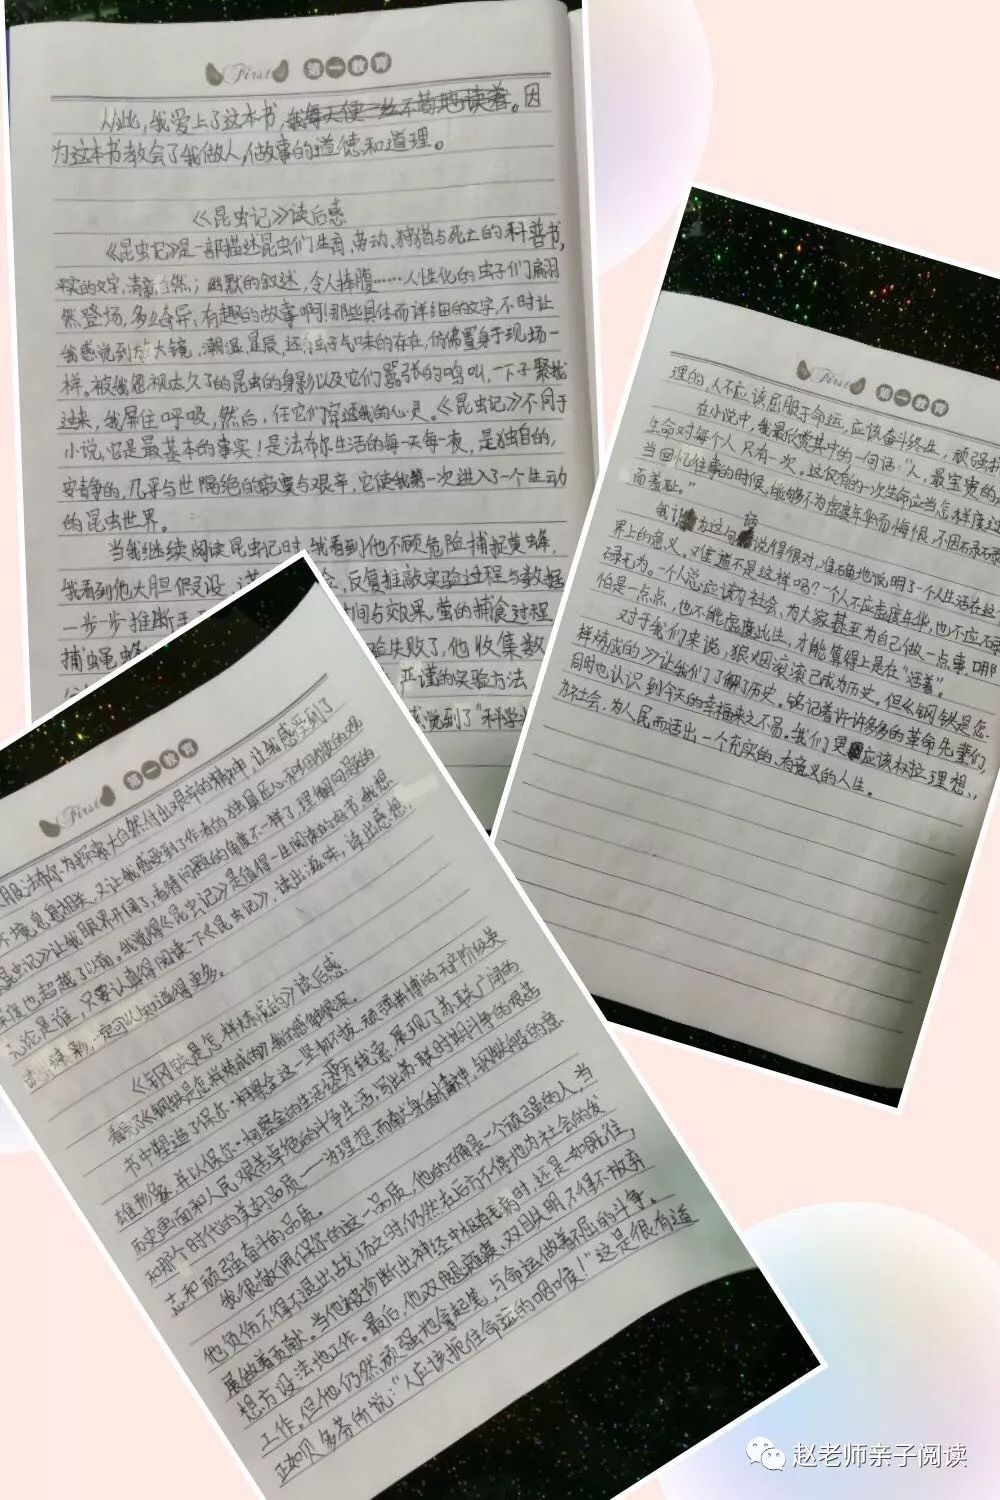 First 第一教育
从此,我爱上了这本书,我每天便一丝不苟地读着。因
为这本书教会了我做人,做事的道德和道理。
《昆虫记》读后感
《昆虫记》是一部描述昆虫们生育、劳动、狩猎与死亡的科普书,
平实的文字,清新自然;幽默的叙述,令人捧腹……人性化的虫子们翩翩
然登场,多么奇异、有趣的故事啊!那些具体而详细的文字,不时让
我感觉到放大镜、潮湿、星辰,还有虫子气味的存在,仿佛置身于现场一
样。被我忽视太久了的昆虫的身影以及它们嚣张的鸣叫,一下子聚拢
过来,我屏住呼吸,然后,任它们穿透我的心灵。《昆虫记》不同于
小说,它是最基本的事实!是法布尔生活的每一天每一夜,是独自的,
安静的,几乎与世隔绝的寂寞与艰辛,它使我第一次进入了一个生动
的昆虫世界。
当我继续阅读昆虫记时,我看到他不顾危险捕捉黄蜂,
我看到他大胆假设,反复推敲实验过程与数据
一步一步推断
间与交效果,萤的捕食过程
捕蝇蜂
验失败了,他收集数
严谨的实验方法
感觉到了“科学
First 第一教育
服法布尔为探索大自然付出艰辛的精神,让我感受到了
环境息息相关,又让我感受到了作者的独具匠心和细微的观
昆虫记》让我眼界开阔了,看待问题的角度不一样了,理解问题的
深度也超越了以前。我觉得《昆虫记》是值得一生阅读的好书,我想
无论是谁,只要认真得阅读一下《昆虫记》,读出滋味,读出感想,
一定可以知道得更多。
《钢铁是怎样炼成的》读后感
看完了《钢铁是怎样炼成的》我的感触很深。
书中塑造了保尔·柯察金这一坚韧不拔、顽强拼搏的无产阶级英
雄形象,并以保尔·柯察金的生活经历为线索,展现了苏联广阔的
历史画面和人民艰苦卓绝的斗争生活,写出苏联时期斗争的艰苦
和那个时代的美好品质——为理想而献身的精神,钢铁般的意
志和顽强奋斗的品质。
我很敬佩保尔的这一品质,他的确是一个顽强的人,当
他负伤不得不退出战场之时,仍然在后方不停地为社会的发
展做着贡献。当他被诊断出神经中枢有毛病时,还是一如既往,
想方设法地工作。最后,他双腿瘫痪、双目失明,不得不放弃
工作,但他仍然顽强地拿起笔,与命运做着不屈的斗争。
正如贝多芬所说:“人应该扼住命运的咽喉!”这是很有道
First 第一教育
理的,人不应该屈服于命运,应该奋斗终生,顽强拼
在小说中,我最欣赏其中的一句话:“人,最宝贵的
生命对每个人只有一次。这仅有的一次生命应当怎样度过
当回忆往事的时候,能够不为虚度年华而悔恨,不因碌碌
而羞耻。”
我认为这句话说得很对,准确地说明了一个人生活在这
界上的意义。难道不是这样吗?一个人不应虚度年华,也不应碌
碌无为。一个人总应该为社会、为大家甚至为自己做一点事,哪
怕是一点点,也不能虚度此生,才能算得上是在“活着”。
对于我们来说,狼烟滚滚已成为历史,但《钢铁是怎
样炼成的》让我们了解了历史。铭记着许许多多的革命先辈们,
同时也认识到今天的幸福来之不易。我们更应该树立理想、
为社会,为人民而活出一个充实的、有意义的人生。
赵老师亲子阅读